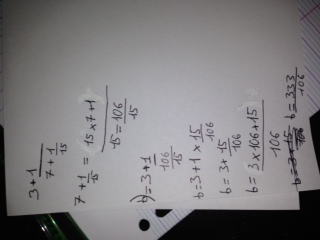 3 + 1
7 + 1/15
7 + 1/15 = 15 x 7 + 1 / 15 = 106/15
b) = 3 + 1 / 106/15
b = 3 + 1 x 15/106
b = 3 + 15/106
b = 3 x 106 + 15 / 106
b = 333/106